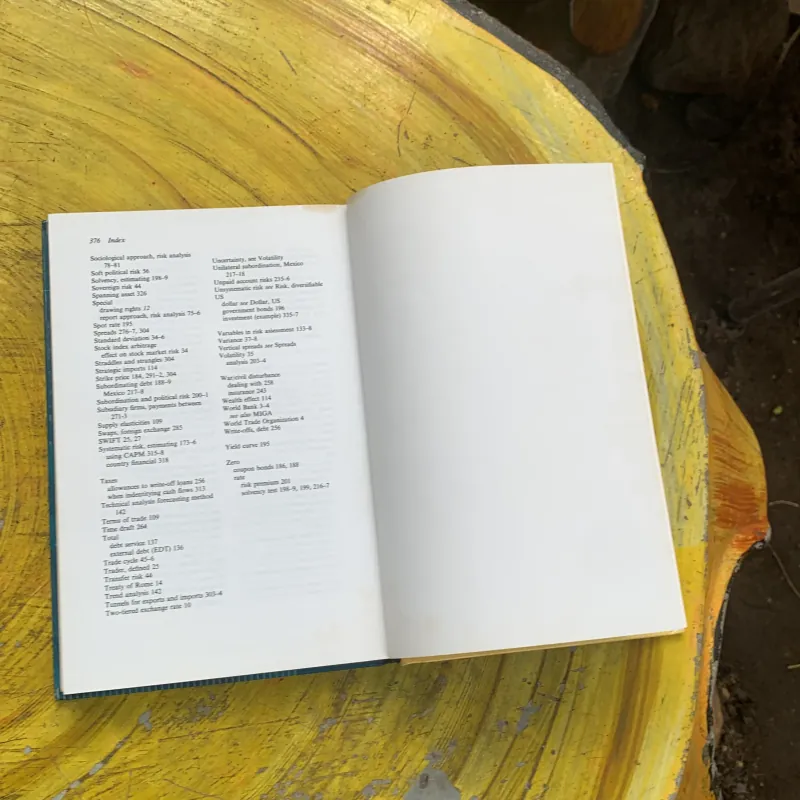 376 Index
Sociological approach, risk analysis
78–81
Soft political risk 56
Solvency, estimating 198–9
Sovereign risk 44
Spanning asset 326
Special
drawing rights 12
report approach, risk analysis 75–6
Spot rate 195
Spreads 276–7, 304
Standard deviation 34–6
Stock index arbitrage
effect on stock market risk 34
Straddles and strangles 304
Strategic imports 114
Strike price 184, 291–2, 304
Subordinating debt 188–9
Mexico 217–8
Subordination and political risk 200–1
Subsidiary firms, payments between
271–3
Supply elasticities 109
Swaps, foreign exchange 285
SWIFT 25, 27
Systematic risk, estimating 173–6
using CAPM 315–8
country financial 318
Taxes
allowances to write-off loans 256
when indentifying cash flows 313
Technical analysis forecasting method
142
Terms of trade 109
Time draft 264
Total
debt service 137
external debt (EDT) 136
Trade cycle 45–6
Trader, defined 25
Transfer risk 44
Treaty of Rome 14
Trend analysis 142
Tunnels for exports and imports 303–4
Two-tiered exchange rate 10
Uncertainty, see Volatility
Unilateral subordination, Mexico
217–18
Unpaid account risks 235–6
Unsystematic risk see Risk, diversifiable
US
dollar see Dollar, US
government bonds 196
investment (example) 335–7
Variables in risk assessment 133–8
Variance 37–8
Vertical spreads see Spreads
Volatility 35
analysis 203–4
War/civil disturbance
dealing with 258
insurance 243
Wealth effect 114
World Bank 3–4
see also MIGA
World Trade Organization 4
Write-offs, debt 256
Yield curve 195
Zero
coupon bonds 186, 188
rate
risk premium 201
solvency test 198–9, 199, 216–7